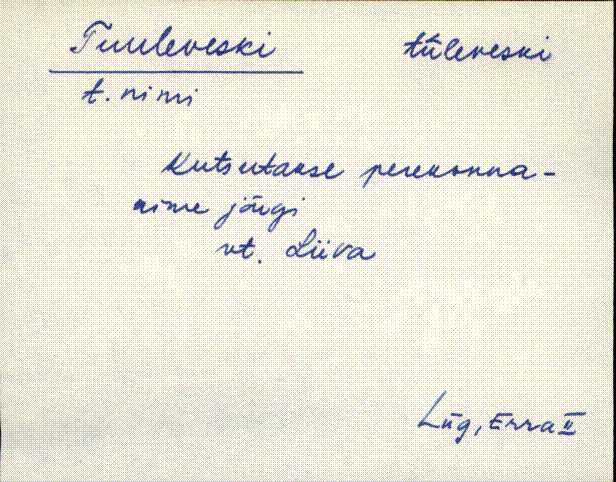 Tuuleveski tüleveski
t. nimi
Kutsutakse perekonna-
nime järgi
vt. Liiva
Lüg, Erra II